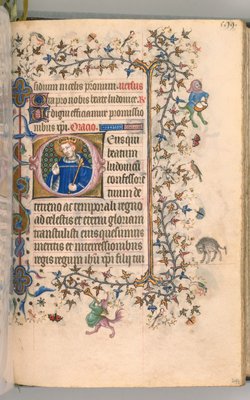 sidium meritis pronum. versus
Ora pro nobis beate ludovice. R
Ut digni efficiamur promissio
nibus xpi. Oracio.
Deus qui
beatum
ludovicu
confessore
tuum de
terreno ac temporali regno
ad celestis et eterni gloriam
transtulisti eius quesumus
meritis et intercessionibus
regis regum ihu xpi filii tui